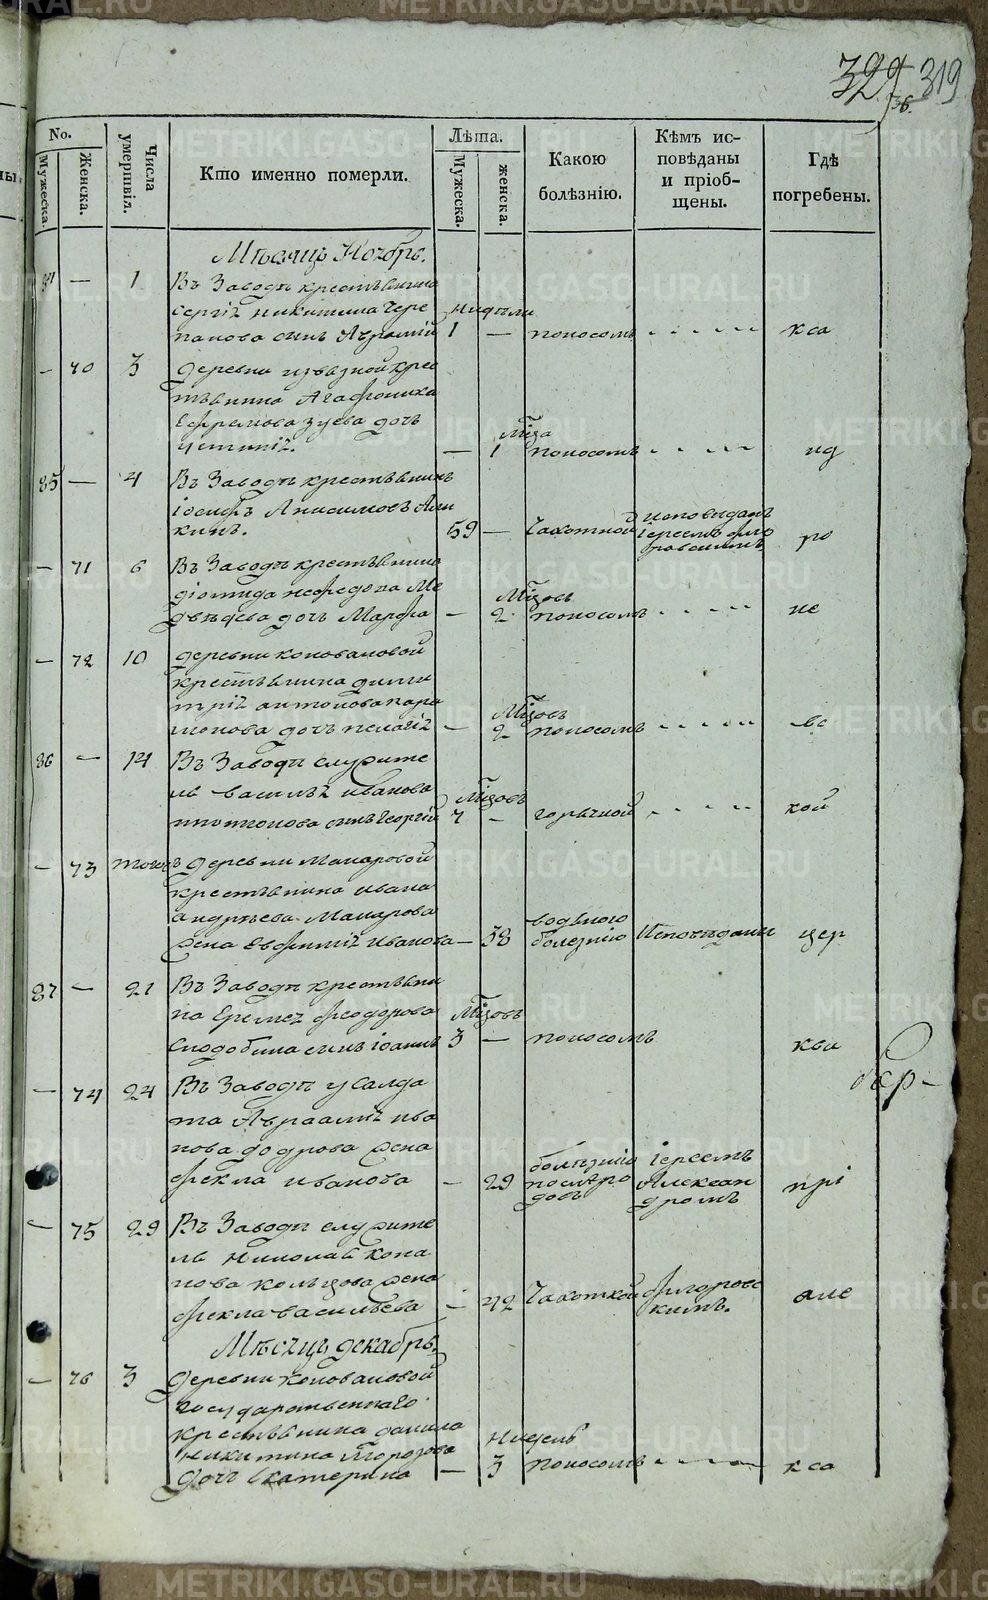 329 319
No.
Мужеска.
Женска.
Числа умершвія.
Кто именно померли.
Лѣта.
Мужеска.
женска.
Какою болѣзнію.
Кѣмъ исповѣданы и пріобщены.
Гдѣ погребены.
Мѣсяцъ Ноябрь.
— 1 Въ Заводѣ крестьянина
Сергія Никитина Чере
панова сынъ Авраамій 1 — поносомъ кса
— 70 3 деревни изъѣзной крес
тьянина Агафоника
Ефремова Зуева дочь
Устинія. — 1 поносомъ
85 — 4 Въ Заводѣ крестьянинъ
Іосифъ Анисимовъ
59 — Чахоткой исповѣданъ
Іереемъ ро
— 71 6 Въ Заводѣ крестьянина
Діомида Нефедова Ме
двѣдева дочь Марфа — 2 поносомъ не
— 72 10 деревни Коноваловой
крестьянина Дими
трія Антонова пара
монова дочь Пелагія — 2 поносомъ вс
86 — 14 Въ Заводѣ служите
ль Василья Иванова
сынъ Георгій 7 — горячкой кой
— 73 тогожъ деревни Макаровой
крестьянина Ивана
Андреева Макарова
жена Евфимія Иванова — 38 водяною
болезнію Исповѣданы цер
87 — 21 Въ Заводѣ крестьяни
на Еремея Феодорова
Сподобина сынъ Іоаннъ 3 — поносомъ ква
— 74 24 Въ Заводѣ у Салда
та Авраамія Ива
нова жена
Фекла Иванова — 29 болѣзнію
после ро
довъ Іереемъ
Алексан
дромъ прі
— 75 29 Въ Заводѣ служите
ль Николая Коно
нова Кольцова жена
Фекла Васильева — 42 Чахоткой Флоровс
кимъ. але
Мѣсяцъ декабрь.
— 76 3 Деревни Коноваловой
государственнаго
крестьянина Данила
Никитина Морозова
дочь Екатерина — Недель
3 поносомъ кса
METRIKI.GASO-URAL.RU